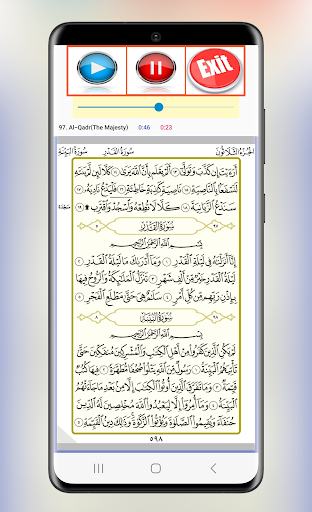 Exit
97. Al-Qadr(The Majesty) 0:46 0:23
الجُزْءُ الثَّلَاثُونَ سُورَةُ القَدْرِ سُورَةُ البَيِّنَةِ
أَرَءَيْتَ إِن كَذَّبَ وَتَوَلَّىٰٓ ١٣ أَلَمْ يَعْلَم بِأَنَّ ٱللَّهَ يَرَىٰ ١٤ كَلَّا لَئِن لَّمْ يَنتَهِ
لَنَسْفَعًۢا بِٱلنَّاصِيَةِ ١٥ نَاصِيَةٍ كَٰذِبَةٍ خَاطِئَةٍ ١٦ فَلْيَدْعُ نَادِيَهُۥ ١٧
سَنَدْعُ ٱلزَّبَانِيَةَ ١٨ كَلَّا لَا تُطِعْهُ وَٱسْجُدْ وَٱقْتَرِب ۩ ١٩
سَجْدَة
٩٧ سُورَةُ القَدْرِ
بِسْمِ ٱللَّهِ ٱلرَّحْمَٰنِ ٱلرَّحِيمِ
إِنَّآ أَنزَلْنَٰهُ فِي لَيْلَةِ ٱلْقَدْرِ ١ وَمَآ أَدْرَىٰكَ مَا لَيْلَةُ ٱلْقَدْرِ ٢
لَيْلَةُ ٱلْقَدْرِ خَيْرٌ مِّنْ أَلْفِ شَهْرٍ ٣ تَنَزَّلُ ٱلْمَلَٰٓئِكَةُ وَٱلرُّوحُ فِيهَا
بِإِذْنِ رَبِّهِم مِّن كُلِّ أَمْرٍ ٤ سَلَٰمٌ هِيَ حَتَّىٰ مَطْلَعِ ٱلْفَجْرِ ٥
٩٨ سُورَةُ البَيِّنَةِ ٨
بِسْمِ ٱللَّهِ ٱلرَّحْمَٰنِ ٱلرَّحِيمِ
لَمْ يَكُنِ ٱلَّذِينَ كَفَرُوا۟ مِنْ أَهْلِ ٱلْكِتَٰبِ وَٱلْمُشْرِكِينَ مُنفَكِّينَ حَتَّىٰ
تَأْتِيَهُمُ ٱلْبَيِّنَةُ ١ رَسُولٌ مِّنَ ٱللَّهِ يَتْلُوا۟ صُحُفًا مُّطَهَّرَةً ٢ فِيهَا كُتُبٌ
قَيِّمَةٌ ٣ وَمَا تَفَرَّقَ ٱلَّذِينَ أُوتُوا۟ ٱلْكِتَٰبَ إِلَّا مِنۢ بَعْدِ مَا جَآءَتْهُمُ
ٱلْبَيِّنَةُ ٤ وَمَآ أُمِرُوٓا۟ إِلَّا لِيَعْبُدُوا۟ ٱللَّهَ مُخْلِصِينَ لَهُ ٱلدِّينَ
حُنَفَآءَ وَيُقِيمُوا۟ ٱلصَّلَوٰةَ وَيُؤْتُوا۟ ٱلزَّكَوٰةَ وَذَٰلِكَ دِينُ ٱلْقَيِّمَةِ ٥
٥٩٨